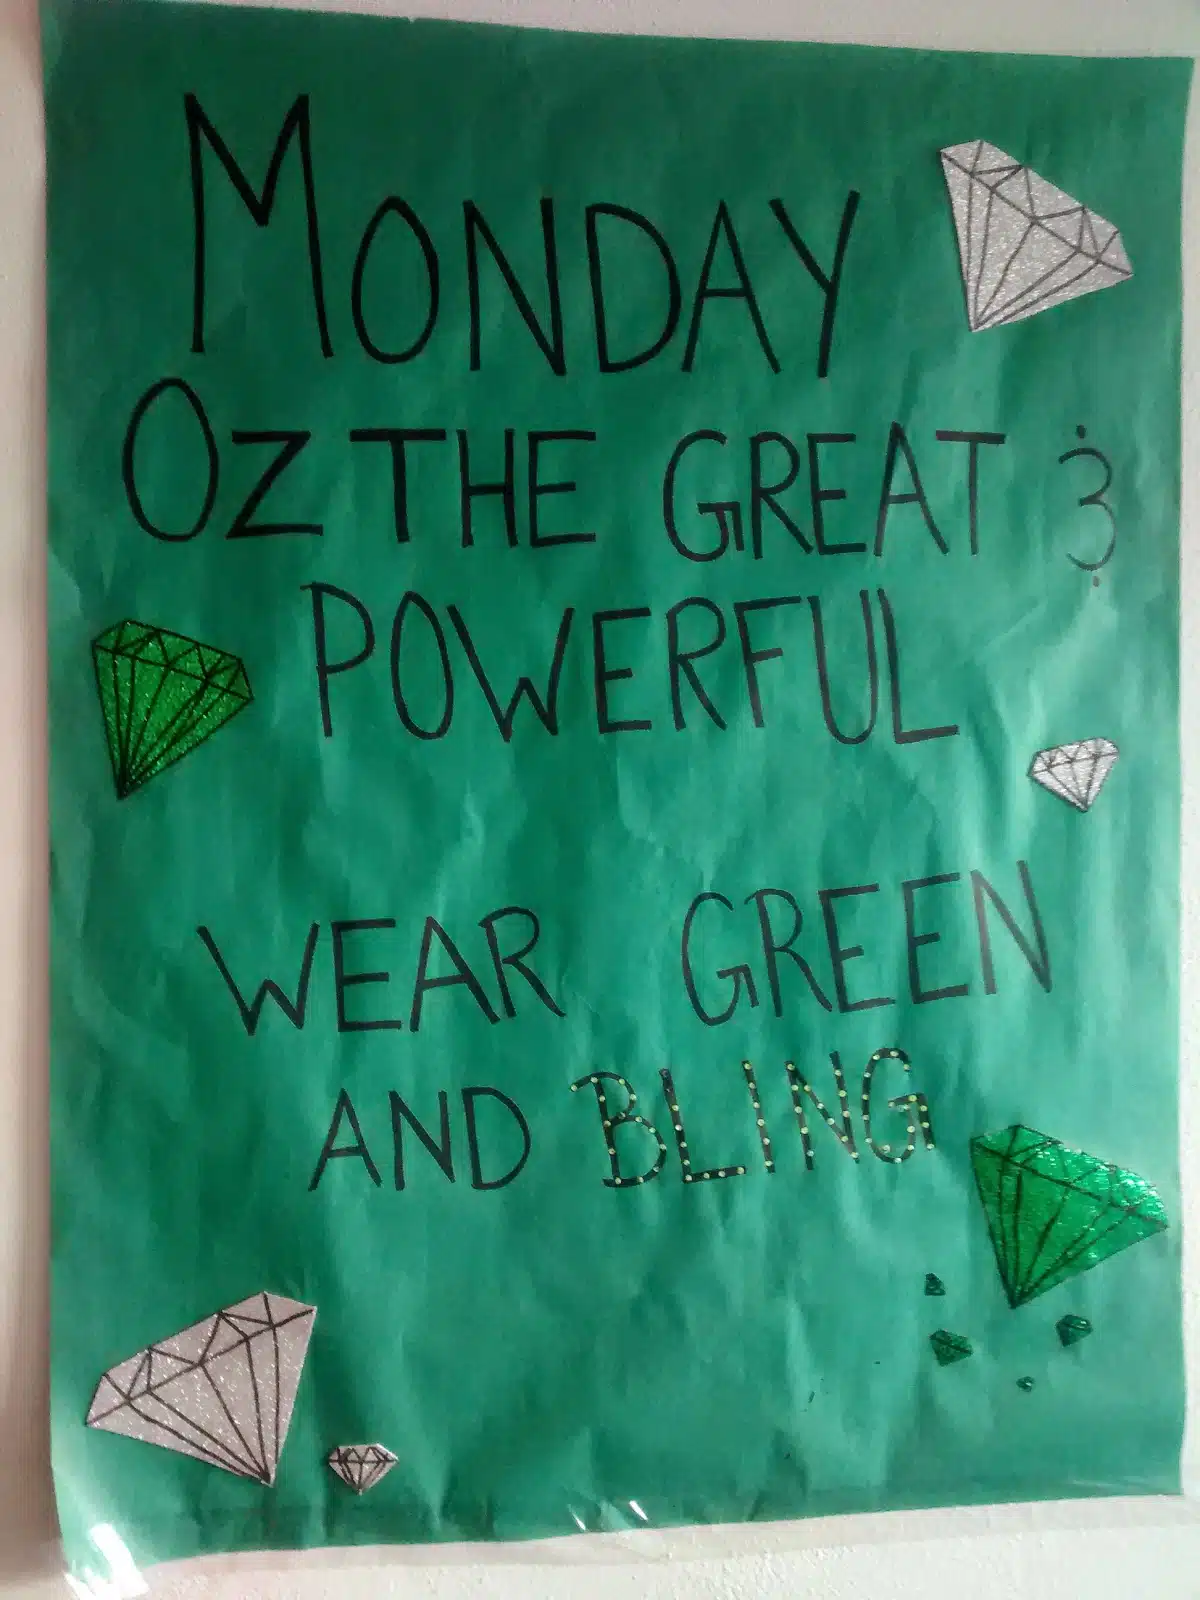 MONDAY
OZ THE GREAT &
POWERFUL
WEAR GREEN
AND BLING